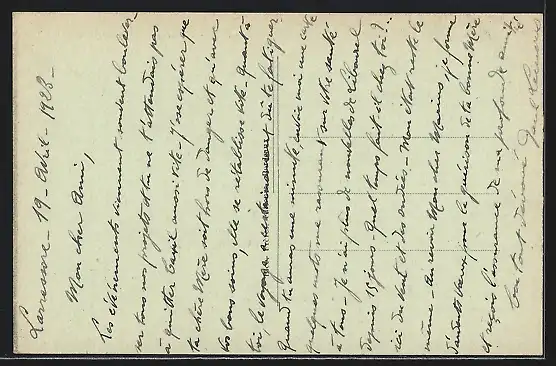 Larressore - 19 - Avril - 1928 -
Mon cher Ami,
Les évènements viennent souvent bouleverser
tous nos projets et tu ne t'attendais pas
à quitter aussi vite - J'ose espérer que
ta chère Mère soit hors de danger et qu'avec
tes bons soins, elle se rétablisse vite - Quant à
toi, le
Quand tu auras une minute, écris-moi une carte
quelques mots me rassurant sur votre santé
à tous - Je n'ai plus de nouvelles de
depuis 15 jours - Quel temps fait-il chez toi ? -
ici du vent et des ondées. - Mon état reste le
même - Au revoir Mon cher, je forme
d' pour la guérison de ta bonne Mère
et reçois l'assurance de ma profonde amitié
Ton tout dévoué